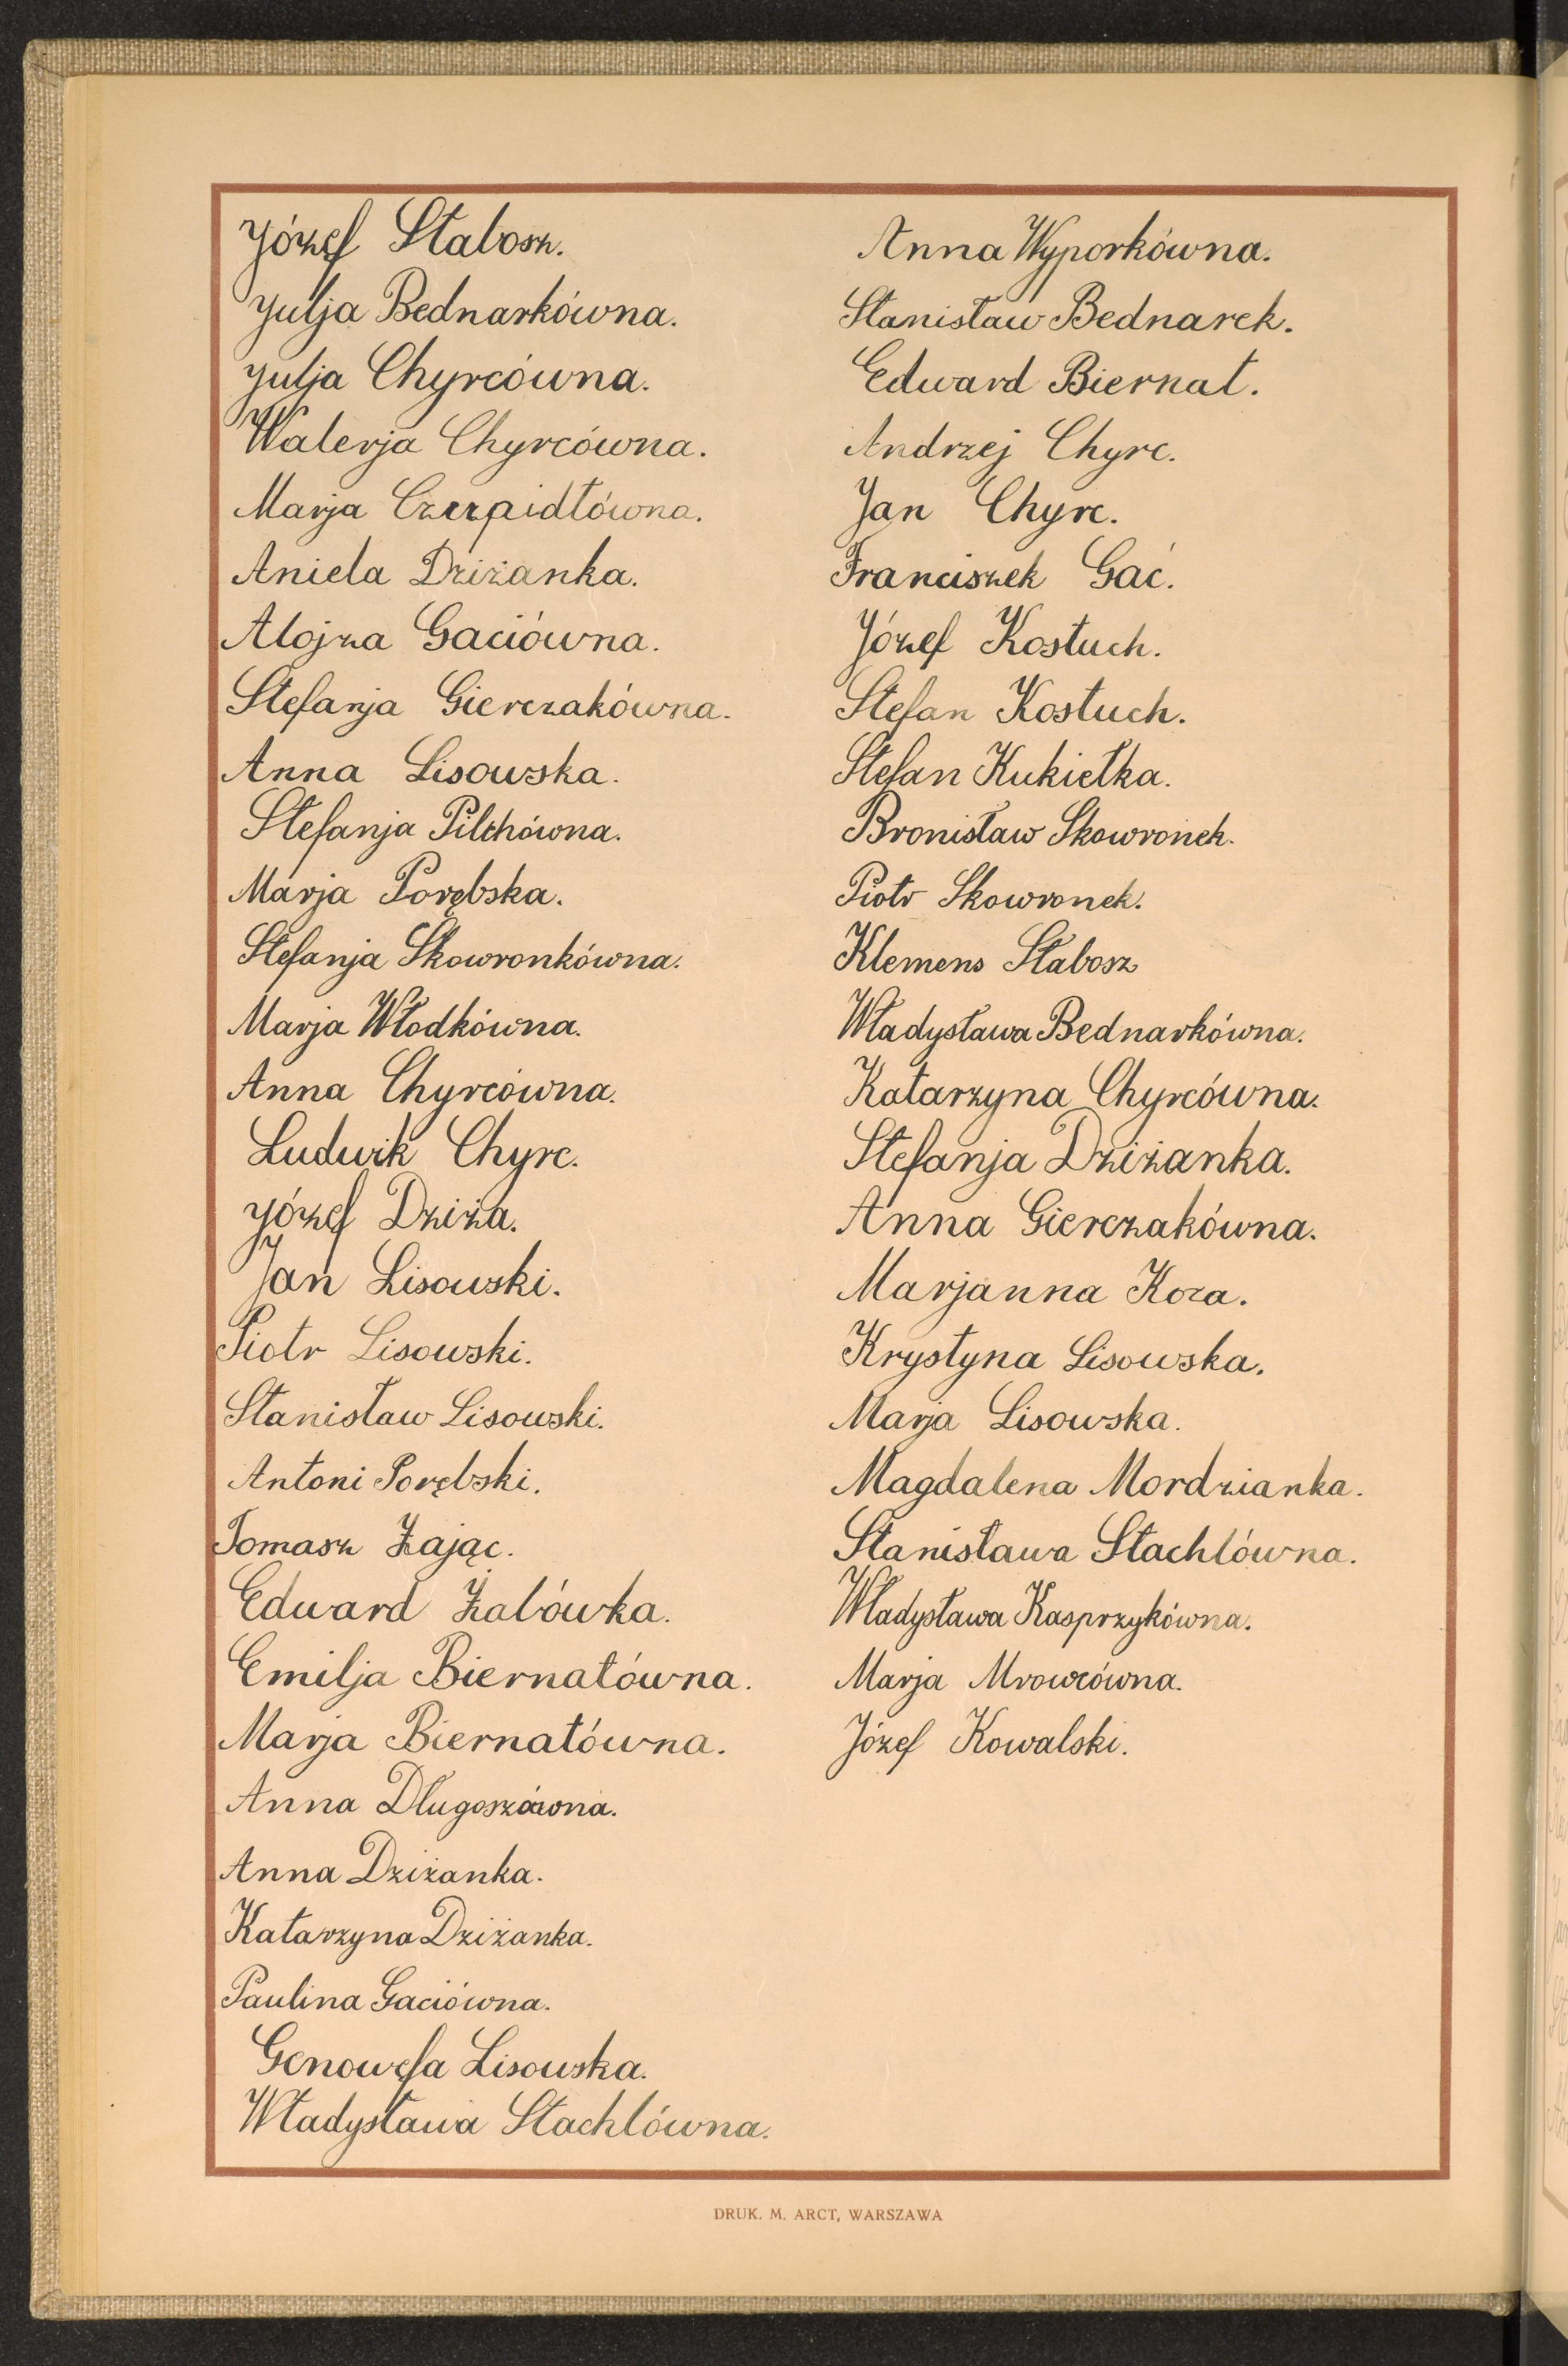 Józef Stabosz.
Julja Bednarkówna.
Julja Chyrcówna.
Walerja Chyrcówna.
Marja Czerpidłówna.
Aniela Dziżanka.
Alojza Gaciówna.
Stefanja Gierczakówna.
Anna Lisowska.
Stefanja Pilchówna.
Marja Porębska.
Stefanja Skowronkówna.
Marja Włodkówna.
Anna Chyrcówna.
Ludwik Chyrc.
Józef Dziża.
Jan Lisowski.
Piotr Lisowski.
Stanisław Lisowski.
Antoni Porębski.
Tomasz Zając.
Edward Żałówka.
Emilja Biernatówna.
Marja Biernatówna.
Anna Długoszówna.
Anna Dziżanka.
Katarzyna Dziżanka.
Paulina Gaciówna.
Genowefa Lisowska.
Władysława Stachlówna.
Anna Wyporkówna.
Stanisław Bednarek.
Edward Biernat.
Andrzej Chyrc.
Jan Chyrc.
Franciszek Gać.
Józef Kostuch.
Stefan Kostuch.
Stefan Kukiełka.
Bronisław Skowronek.
Piotr Skowronek.
Klemens Stabosz
Władysława Bednarkówna.
Katarzyna Chyrcówna.
Stefanja Dziżanka.
Anna Gierczakówna.
Marjanna Koza.
Krystyna Lisowska.
Marja Lisowska.
Magdalena Mordzianka.
Stanisława Stachlówna.
Władysława Kasprzykówna.
Marja Mrowcówna.
Józef Kowalski.
DRUK. M. ARCT, WARSZAWA